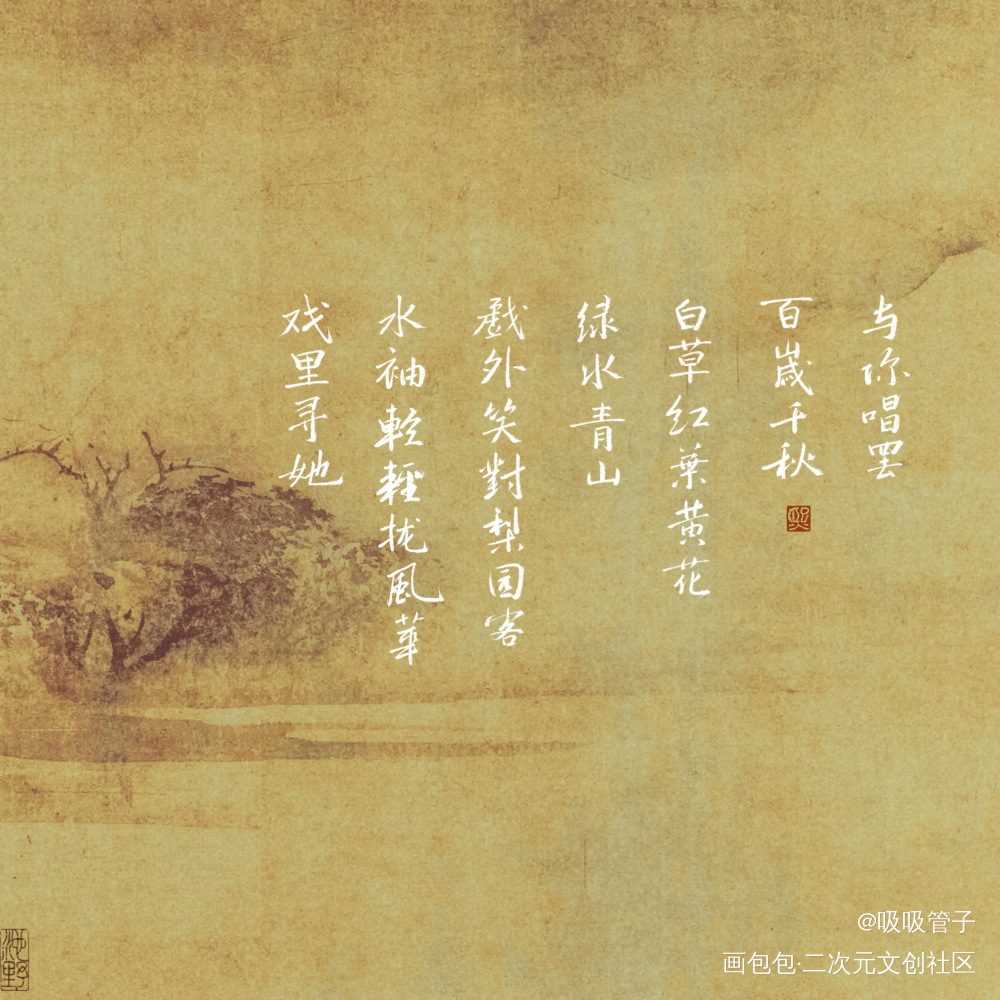 与你唱罢
百歲千秋
熙
白草红葉黄花
绿水青山
戲外笑對梨园客
水袖軟輕拢風華
戏里寻她
@吸吸管子
画包包·二次元文创社区